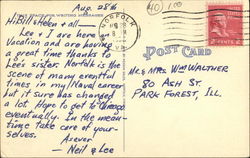 Aug. 28th
THIS SPACE FOR WRITING MESSAGES
NORFOLK
VA.
40
1.00
Hi Bill Helen + all —
Lee + I are here on
vacation and are having a
great time thanks to
Lee's sister. Norfolk is the
scene of many eventful
times in my Navy career
but it sure has changed
a lot. Hope to get to Chicago
eventually. In the mean-
time take care of your-
selves.
As ever
— Neil & Lee
POST CARD
Mr. & Mrs. Wm Walther
80 Ash St.
Park Forest, Ill.